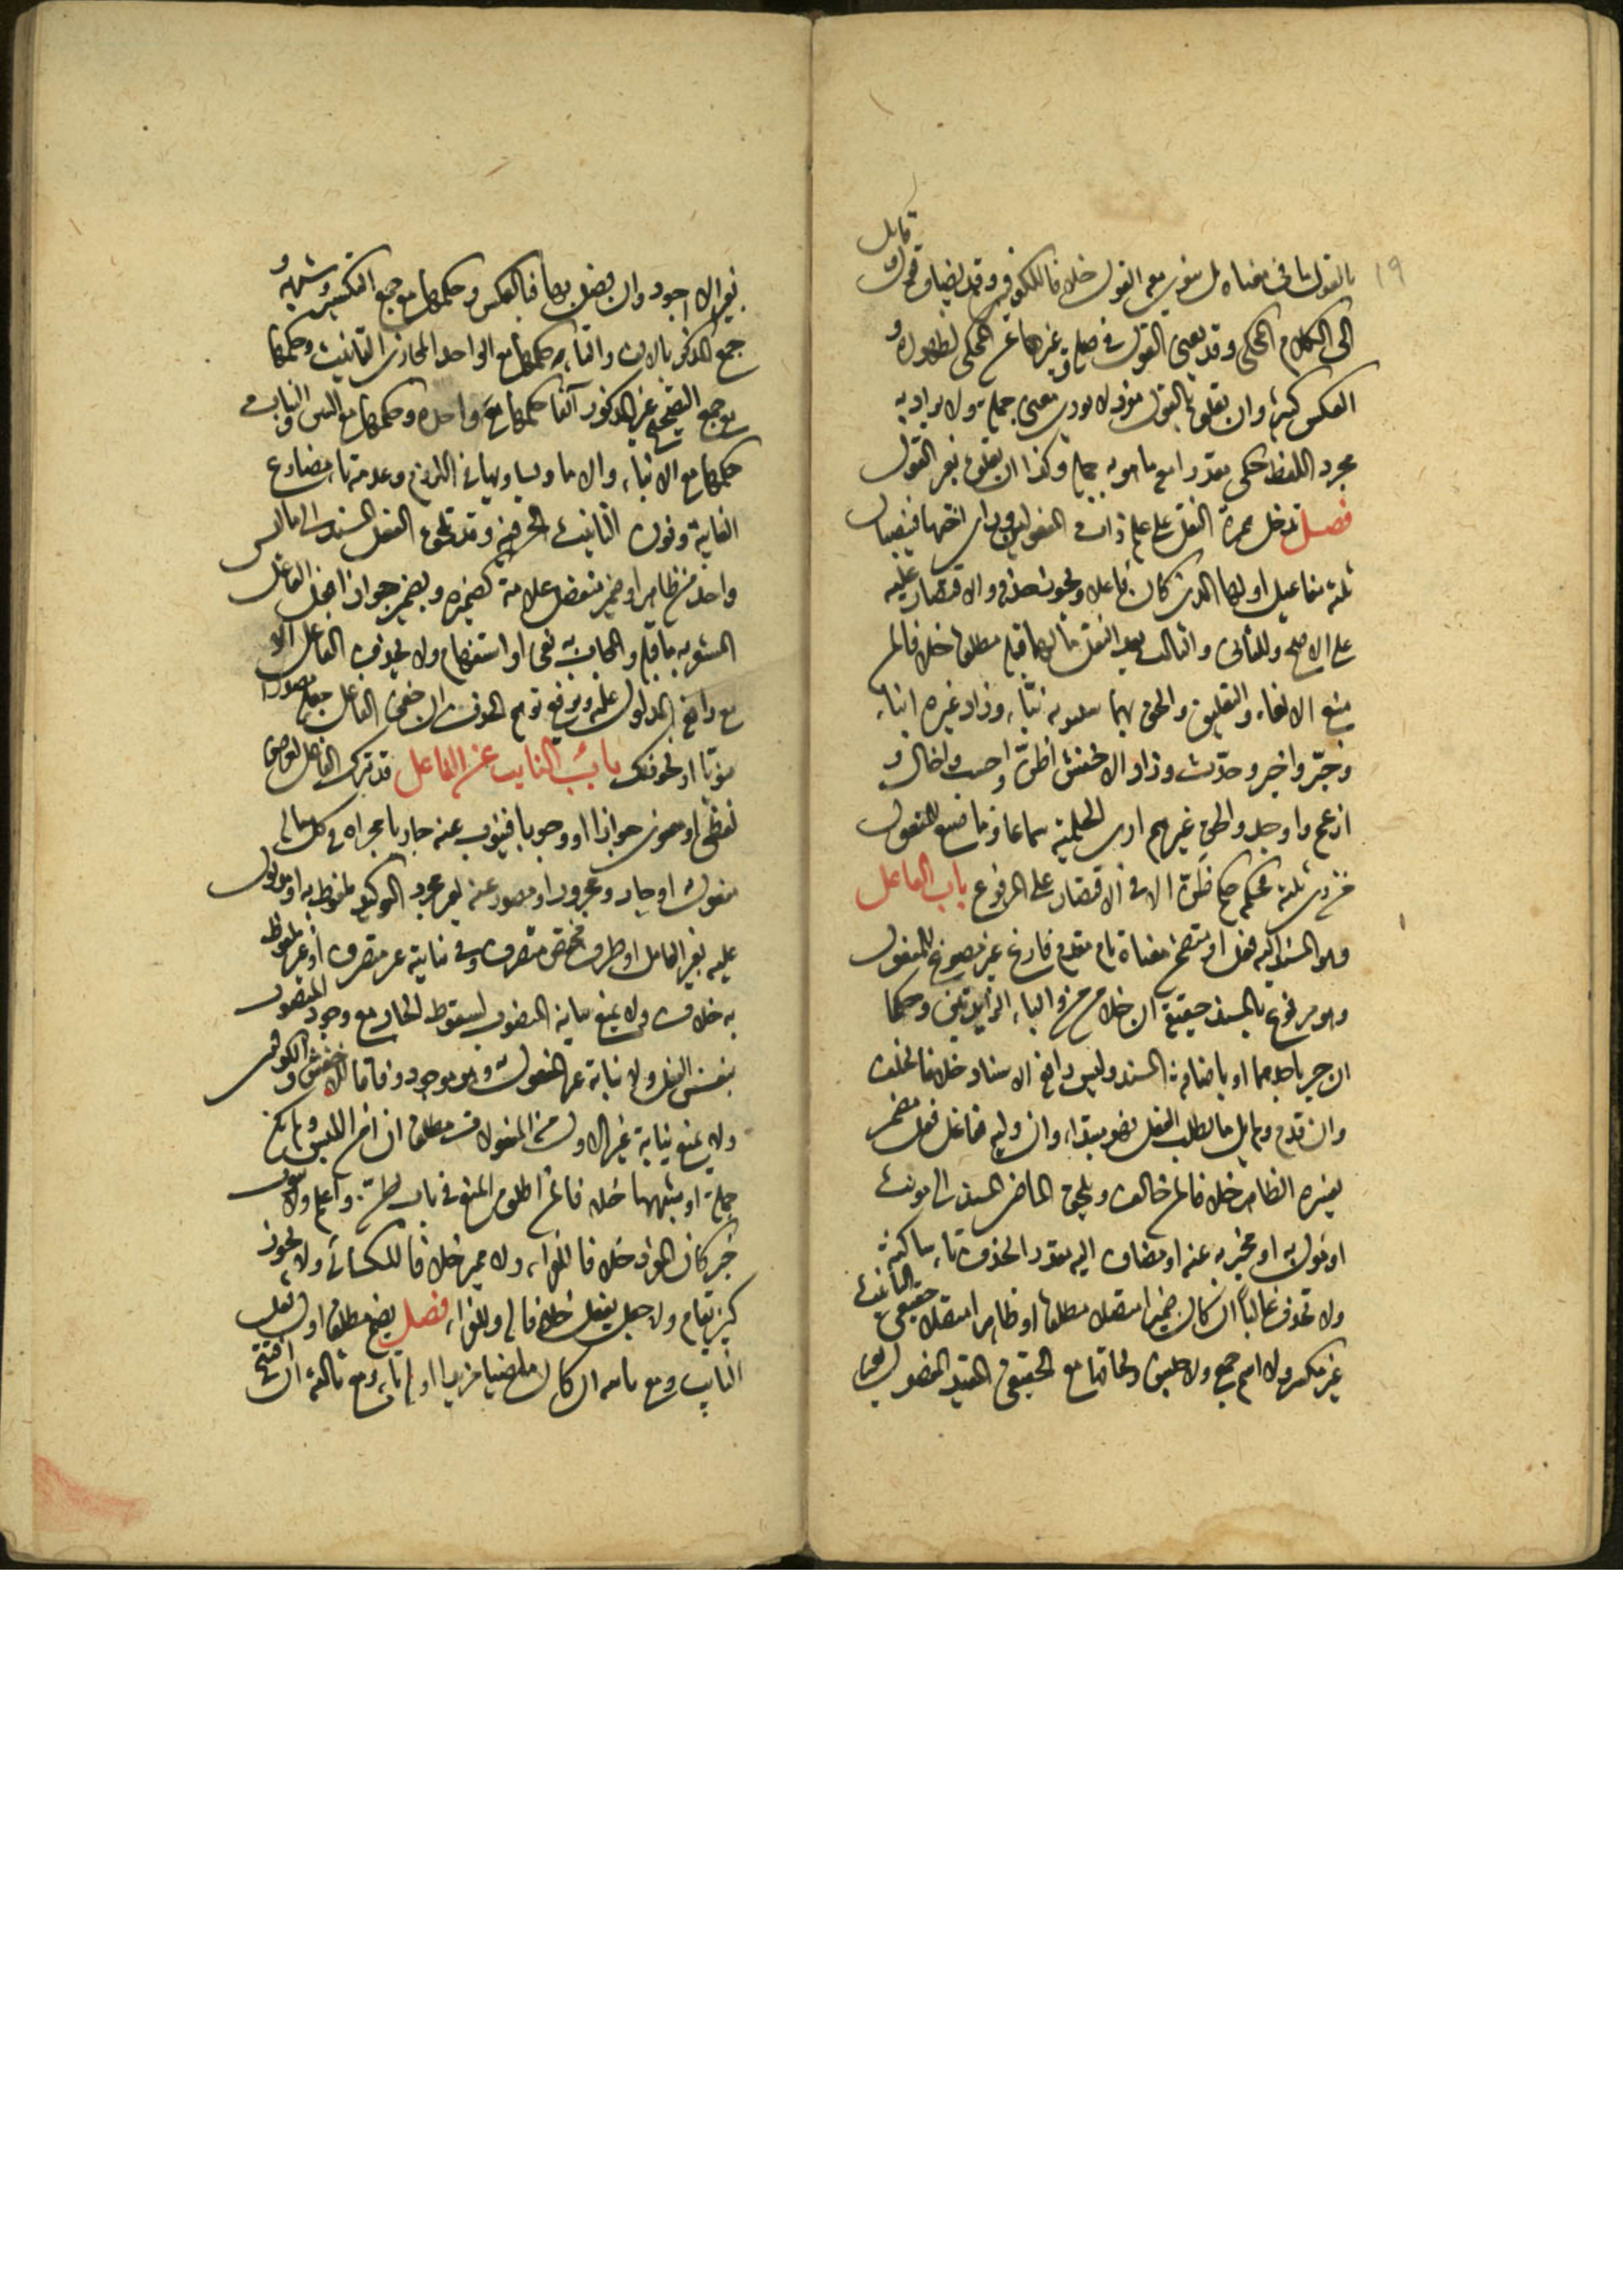 ١٩
قائل
بالقول ما في معناه بل ينوى معه القول خلافا للكوفيين وقد يضاف قول
الى الكلام المحكى وقد يغنى القول في صلة وغيرها عن المحكى لظهوره و
العكس كثير وان تعلق بالقول مفرد لا يودى معنى جملة ولا يراد به
مجرد اللفظ حكى مقدرا معه ما هو به جملة وكذا ان تعلق بغير القول
فصل تدخل همزة النقل على علم ذات المفعولين وراى اختها فينصبان
ثلثة مفاعيل اولها الذى كان فاعلا ويجوز حذفه والاقتصار عليه
على الاصح وللثانى والثالث بعد النقل ما لهما قبله مطلقا خلافا لمن
منع الالغاء والتعليق والحق بهما سيبويه نبّاء وزاد غيره انباء
وخبّر واخبر وحدّث وزاد الاخفش اظنّ واحسب واخال و
ازعم واوجد والحق غيرهم ارى الحلمية سماعا وما صيغ للمفعول
من ذى ثلثة فحكمه حكم ظنّ الا في الاقتصار على المرفوع باب الفاعل
وهو المسند اليه فعل او مضمن معناه تام مقدم فارغ غير مصوغ للمفعول
وهو مرفوع بالمسند حقيقة ان خلا من من والباء الزايدتين وحكما
ان جر باحدهما او باضافة المسند وليس رافعه الاسناد خلافا لخلف
وان قدم ولم يل ما يطلب الفعل فهو مبتداء وان وليه ففاعل فعل مضمر
يفسره الظاهر خلافا لمن خالف ويلحق الماضى المسند الى مونث
او مؤول به او مخبر به عنه او مضاف اليه مقدر الحذف تاء ساكنة
ولا تحذف غالبا ان كان ضميرا متصلا مطلقا او ظاهرا متصلا حقيقى التأنيث
غير مكسر ولا اسم جمع ولا جنس ولحاقها مع الحقيقى المقيد المفصول
بغير الا اجود وان فصل بها فبالعكس وحكمها مع جمع التكسير وشبهه و
جمع المذكر بالالف والتاء حكمها مع الواحد المجازى التانيث وحكمها
مع جمع التصحيح غير المذكور آنفا حكمها مع واحده وحكمها مع البنين والبنات
حكمها مع الابناء والاماء ويساويها في اللزوم وعدمه تاء مضارع
الغايبة ونون التانيث الحرفية وقد تلحق الفعل المسند الى ما ليس
واحد من ظاهر او ضمير منفصل علامة كضميره ويضمر جوازا فعل الفاعل
المشعر به ما قبله والمجاب به نفى او استفهام ولا يحذف الفاعل الا
مع رافعه المدلول عليه ويرفع توهم الحذف ان خفى الفاعل جعله مصدرا
منويا او نحو ذلك باب النايب عن الفاعل قد يترك الفاعل لغرض
لفظى او معنوى جوازا او وجوبا فينوب عنه جاريا مجراه في كل ما له
مفعول به او جار ومجرور او مصدر لغير مجرد التوكيد ملفوظ به او مدلول
عليه بغير العامل او ظرف مختص متصرف وفي نيابته غير متصرف او غير ملفوظ
به خلاف ولا يمنع نيابة المنصوب لسقوط الجار مع وجود المنصوب
بنفس الفعل ولا نيابة غير المفعول به وهو موجود وفاقا للاخفش والكوفيين
ولا يمنع نيابة غير الاول من المفعولات مطلقا ان امن اللبس ولم يكن
جملة او شبهها خلافا لمن اطلق المنع في باب ظن واعلم ولا ينوب
خبر كان المفرد خلافا للفراء ولا مميز خلافا للكسائى ولا يجوز
كين يقام ولا جعل يفعل خلافا له وللفراء فصل يضم مطلقا اول فعل
النايب ومع ثانيه ان كان ماضيا مزيدا اوله تاء ومع ثالثه ان افتتح